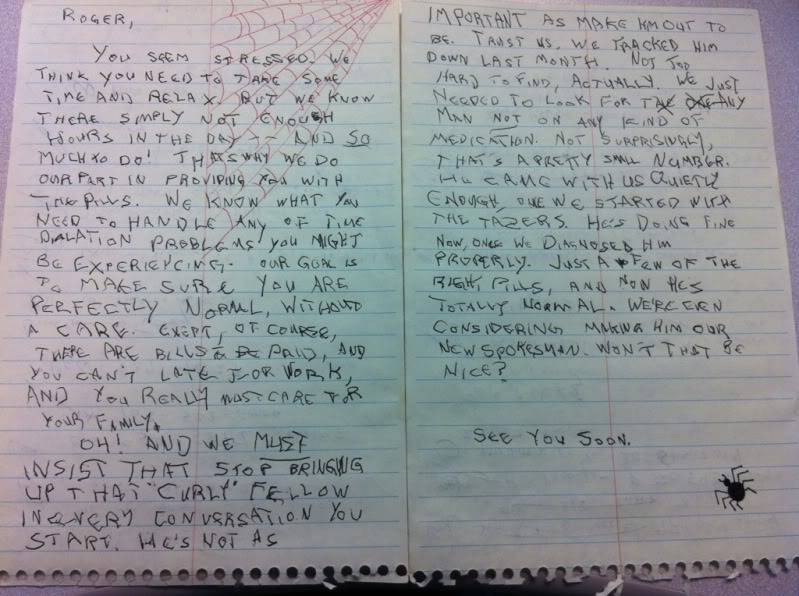 ROGER,
YOU SEEM STRESSED. WE
THINK YOU NEED TO TAKE SOME
TIME AND RELAX. BUT WE KNOW
THERE SIMPLY NOT ENOUGH
HOURS IN THE DAY -- AND SO
MUCH TO DO! THATS WHY WE DO
OUR PART IN PROVIDING YOU WITH
THE PILLS. WE KNOW WHAT YOU
NEED TO HANDLE ANY OF TIME
DIALATION PROBLEMS YOU MIGHT
BE EXPERIENCING. OUR GOAL IS
TO MAKE SURE YOU ARE
PERFECTLY NORMAL, WITHOUT
A CARE. EXEPT, OF COURSE,
THERE ARE BILLS PAID, AND
YOU CAN'T LATE FOR WORK,
AND YOU REALLY MUST CARE FOR
YOUR FAMILY.
OH! AND WE MUST
INSIST THAT STOP BRINGING
UP THAT "CURLY" FELLOW
IN EVERY CONVERSATION YOU
START. HE'S NOT AS
IMPORTANT AS MAKE HIM OUT TO
BE. TRUST US. WE TRACKED HIM
DOWN LAST MONTH. NOT TOO
HARD TO FIND, ACTUALLY. WE JUST
NEEDED TO LOOK FOR ANY
MAN NOT ON ANY KIND OF
MEDICATION. NOT SURPRISINGLY,
THAT'S A PRETTY SMALL NUMBER.
HE CAME WITH US QUIETLY
ENOUGH, ONE WE STARTED WITH
THE TAZERS. HE'S DOING FINE
NOW, ONCE WE DIAGNOSED HIM
PROPERLY. JUST A FEW OF THE
RIGHT PILLS, AND NOW HE'S
TOTALLY NORMAL. WE'RE EVEN
CONSIDERING MAKING HIM OUR
NEW SPOKESMAN. WON'T THAT BE
NICE?
SEE YOU SOON.